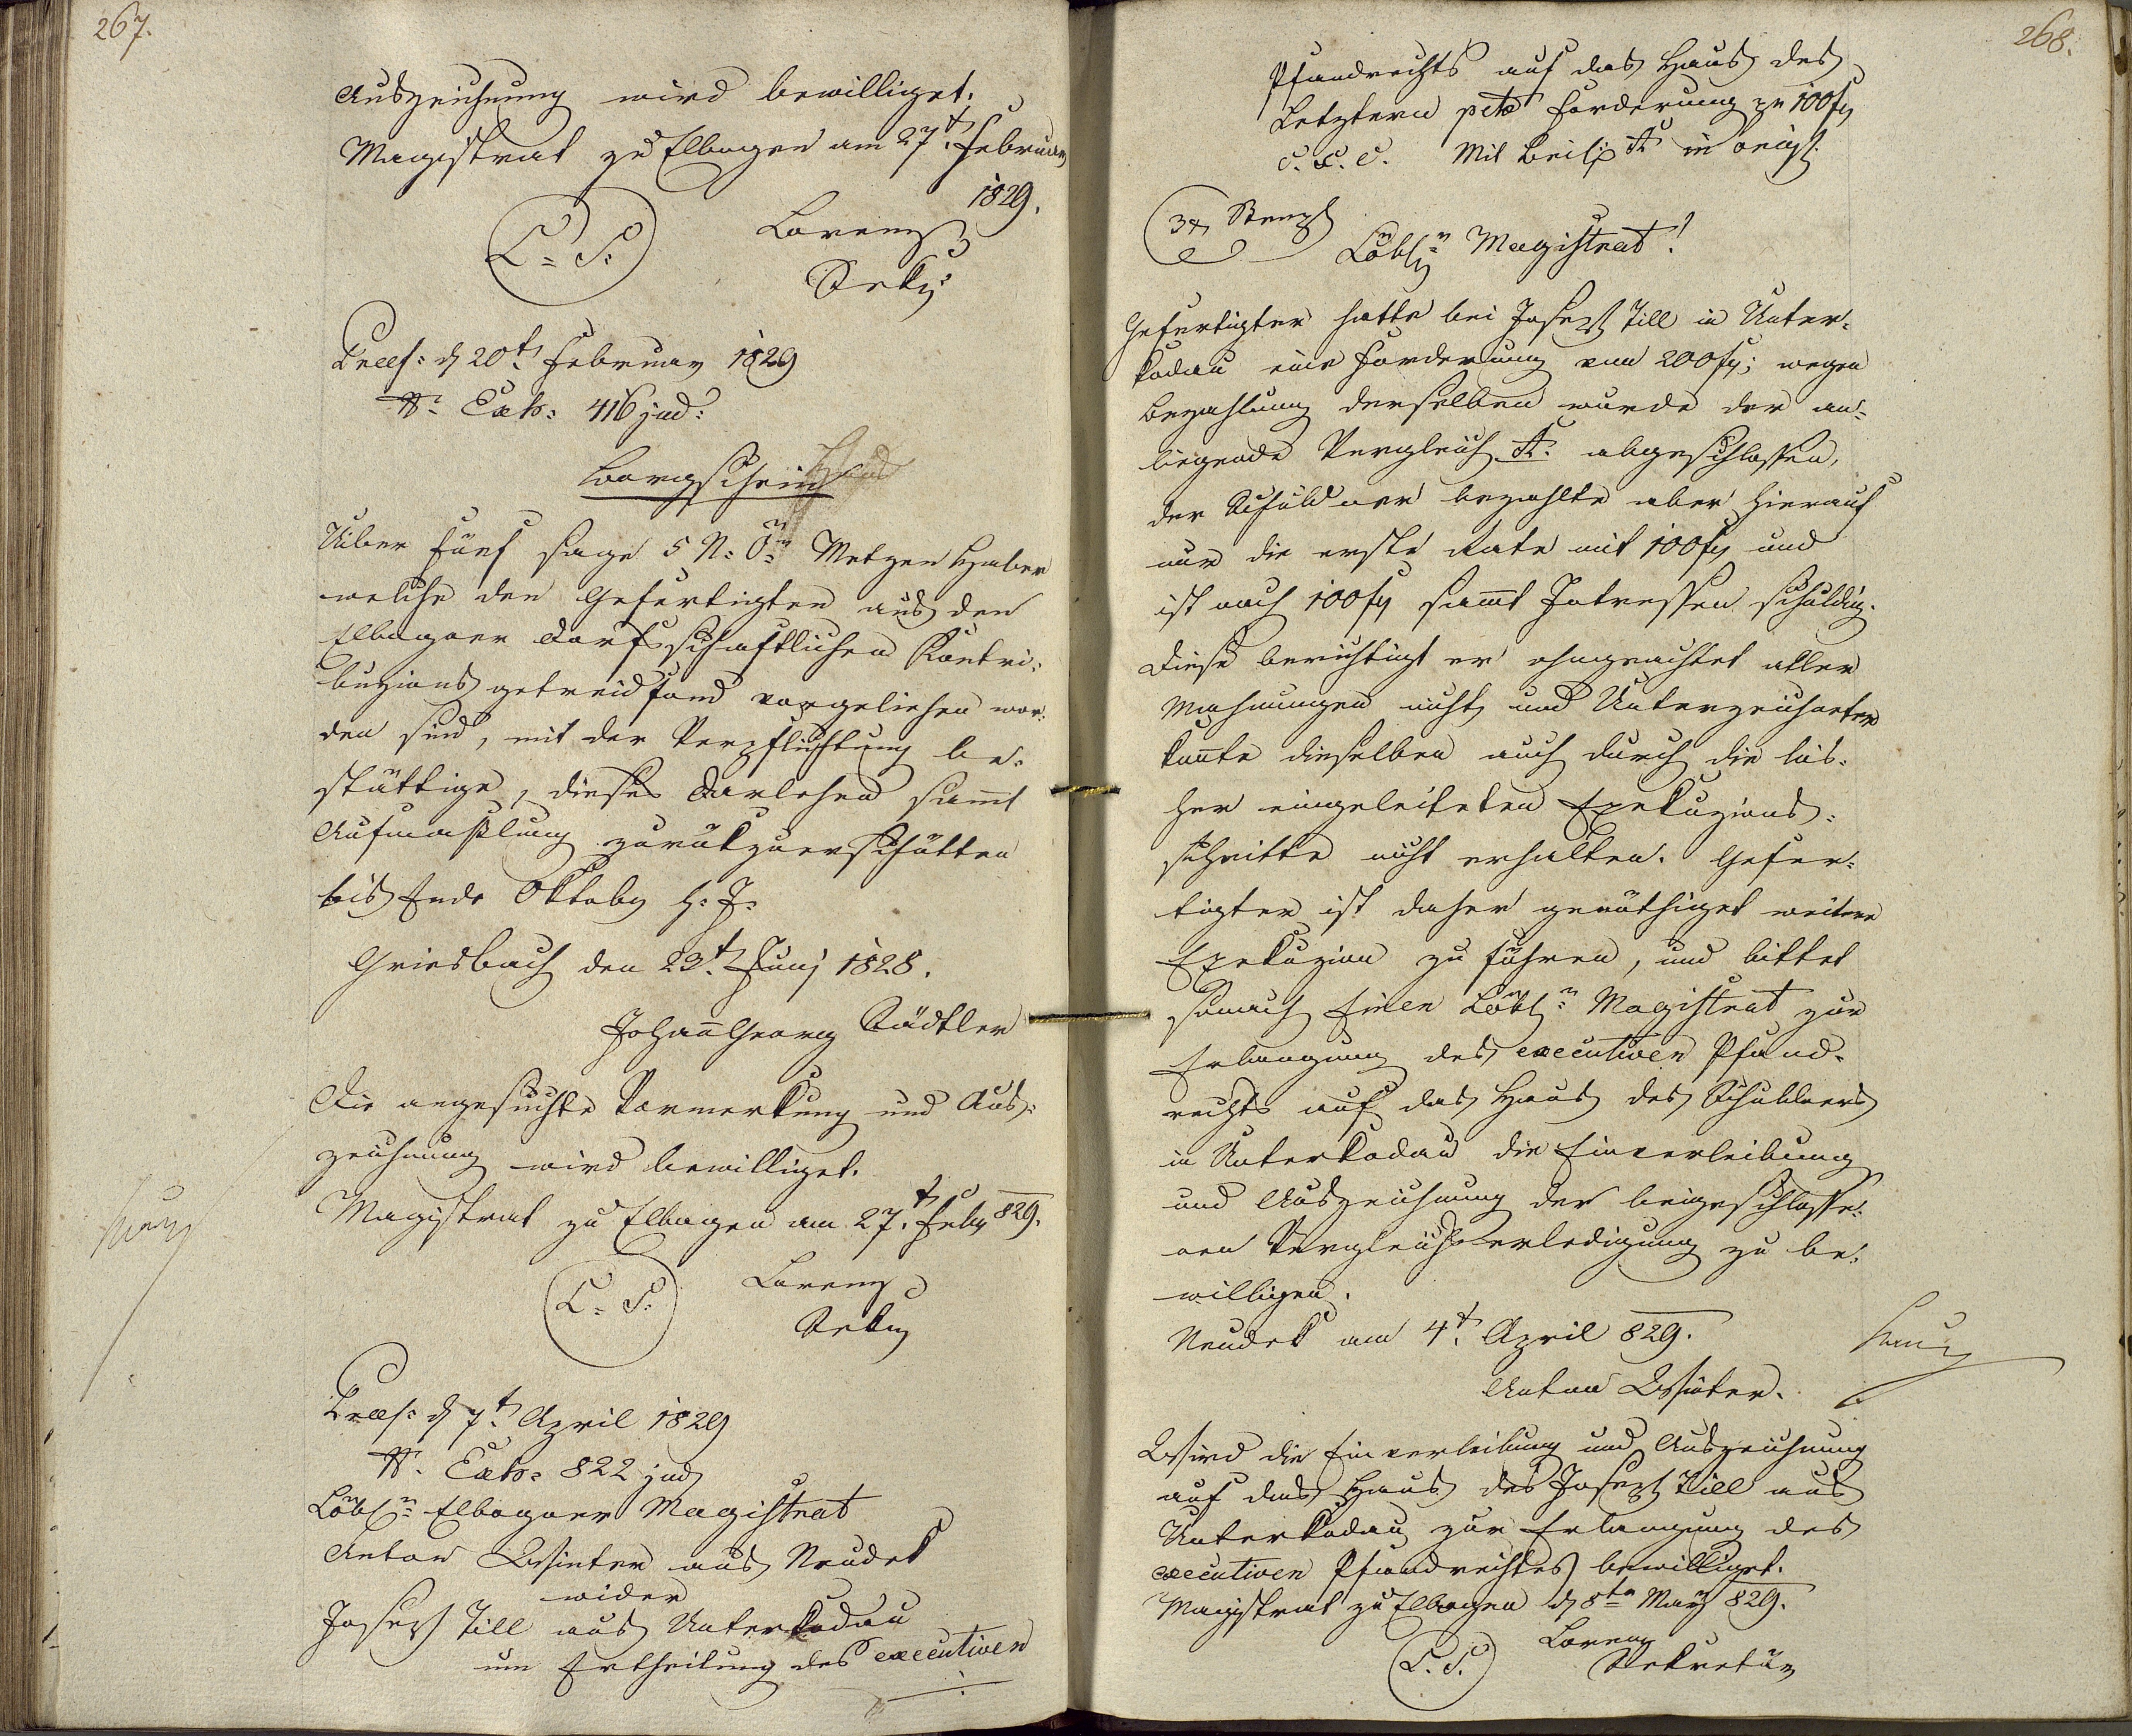 267.
Auszeichnung wird bewilliget.
Magistrat zu Elbogen am 27t. Februar
1829.
L. S.
Lorenz
Sekr:
Praes: d 20t. Februar 1829
Nr. Exh: 416 jud:
Borgschein
Uiber fünf sage 5 N: Ö: Metzen Haber
welche den Gefertigten aus den
Elbogner dorfsschaftlichen Kontri-
buzions getreidfond vorgeliehen wor-
den sind, mit der Verpflichtung be-
stättige, dieses Darlehen sammt
Aufmaßlung zurükzuerschütten
bis Ende Oktober h: J:
Griesbach den 23t. Juny 1828.
Johann Georg Städtler
Die angesuchte Vormerkung und Aus-
zeichnung wird bewilliget.
Magistrat zu Elbogen am 27.t Feber 829.
L. S.
Lorenz
Sekr
Praes: d 7t. April 1829
Nr. Exh: 822 jud
Löbl. Elbogner Magistrat
Anton Winter aus Neudek
wider
Josef Till aus Unterkodau
um Ertheilung des executiven
268.
Pfandrechts auf das Haus des
Letztern pcto Forderung zu 100 f
c. s. c. Mit Beil: A in orig.
3 x Stempl
Löbl. Magistrat!
Gefertigter hatte bei Josef Till in Unter-
kodau eine Forderung von 200 f; wegen
Bezahlung derselben wurde der an-
liegende Vergleich A. abgeschlossen,
der Schuldner bezahlte aber hierauf
nur die erste Rate mit 100 f und
ist noch 100 f sammt Intressen schuldig.
Diese berichtigt er ohngeachtet aller
Mahnungen nicht und Unterzeichneter
konnte dieselben auch durch die bis-
her eingeleiteten Exekuzions-
schritte nicht erhalten. Gefer-
tigter ist daher genöthiget weitere
Exekuzion zu führen, und bittet
sonach Einen Löbl. Magistrat zur
Erlangung des executiven Pfand-
rechts auf das Haus des Schuldners
in Unterkodau die Einverleibung
und Auszeichnung der beigeschlosse-
nen Vergleichserledigung zu be-
willigen.
Neudek am 4t. April 829.
Anton Winter.
Wird die Einverleibung und Auszeichnung
auf das Haus des Josef Till aus
Unterkodau zur Erlangung des
executiven Pfandrechtes bewilliget.
Magistrat zu Elbogen d 8ten May 829.
L. S.
Lorenz
Sekretär